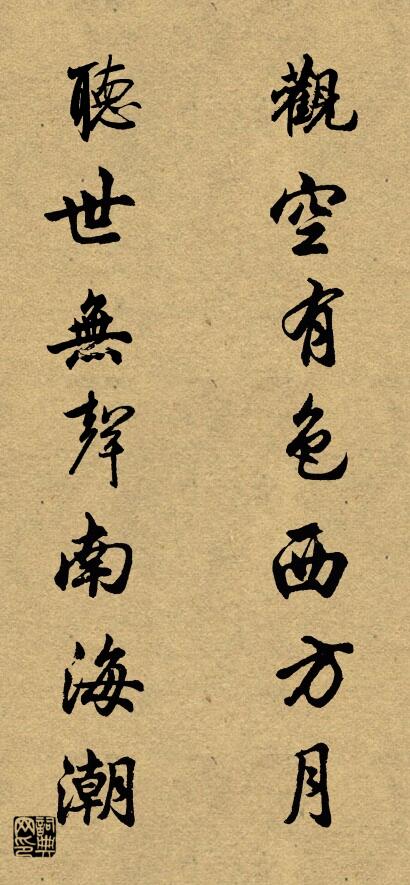 觀空有色西方月
聽世無聲南海潮
詞典网印